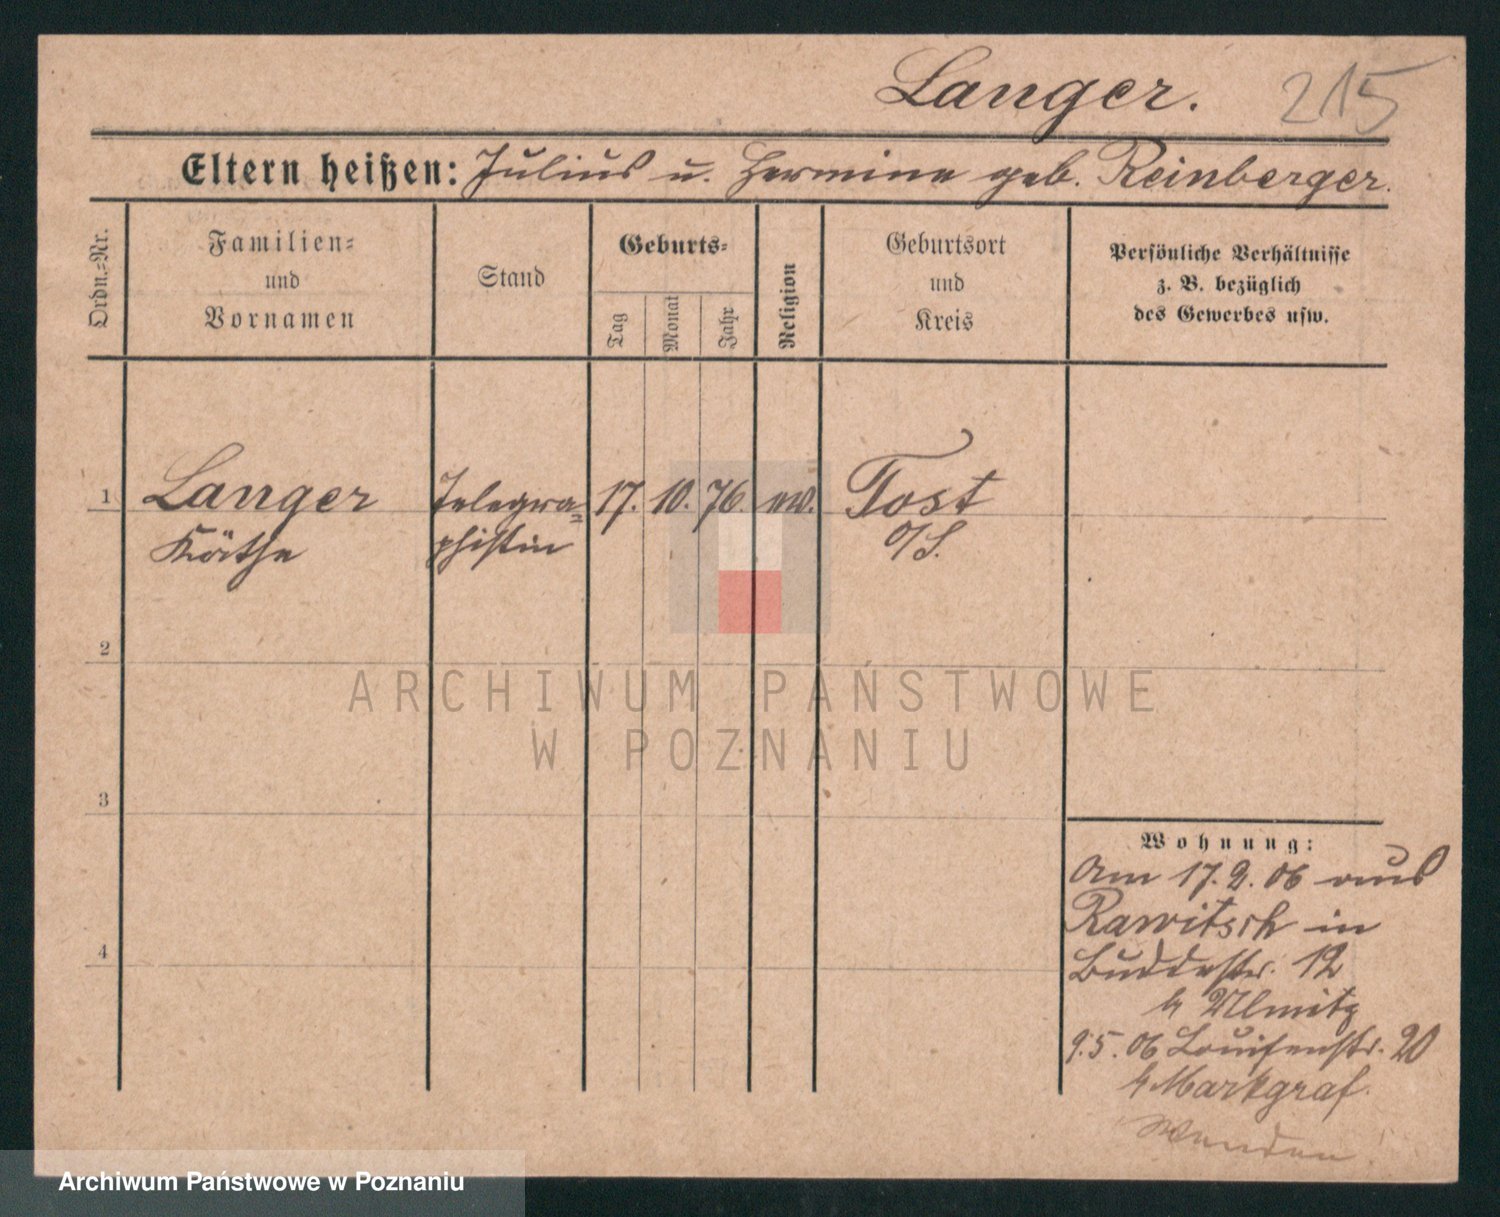 Langer. 215
Eltern heißen: Julius u. Hermine geb. Reinberger.
Ordn.=Nr.
Familien=
und
Vornamen
Stand
Geburts=
Tag
Monat
Jahr
Religion
Geburtsort
und
Kreis
Persönliche Verhältnisse
z. B. bezüglich
des Gewerbes usw.
1 Langer Telegra= 17. 10. 76. ev. Tost
Käthe phistin O/S.
2
ARCHIWUM PAŃSTWOWE
W POZNANIU
3
4
Wohnung:
Am 17.2.06 aus
Rawitsch in
Buddestr. 12
b Ulmitz
9.5.06 Louisenstr. 20
b Markgraf.
Wenden
Archiwum Państwowe w Poznaniu